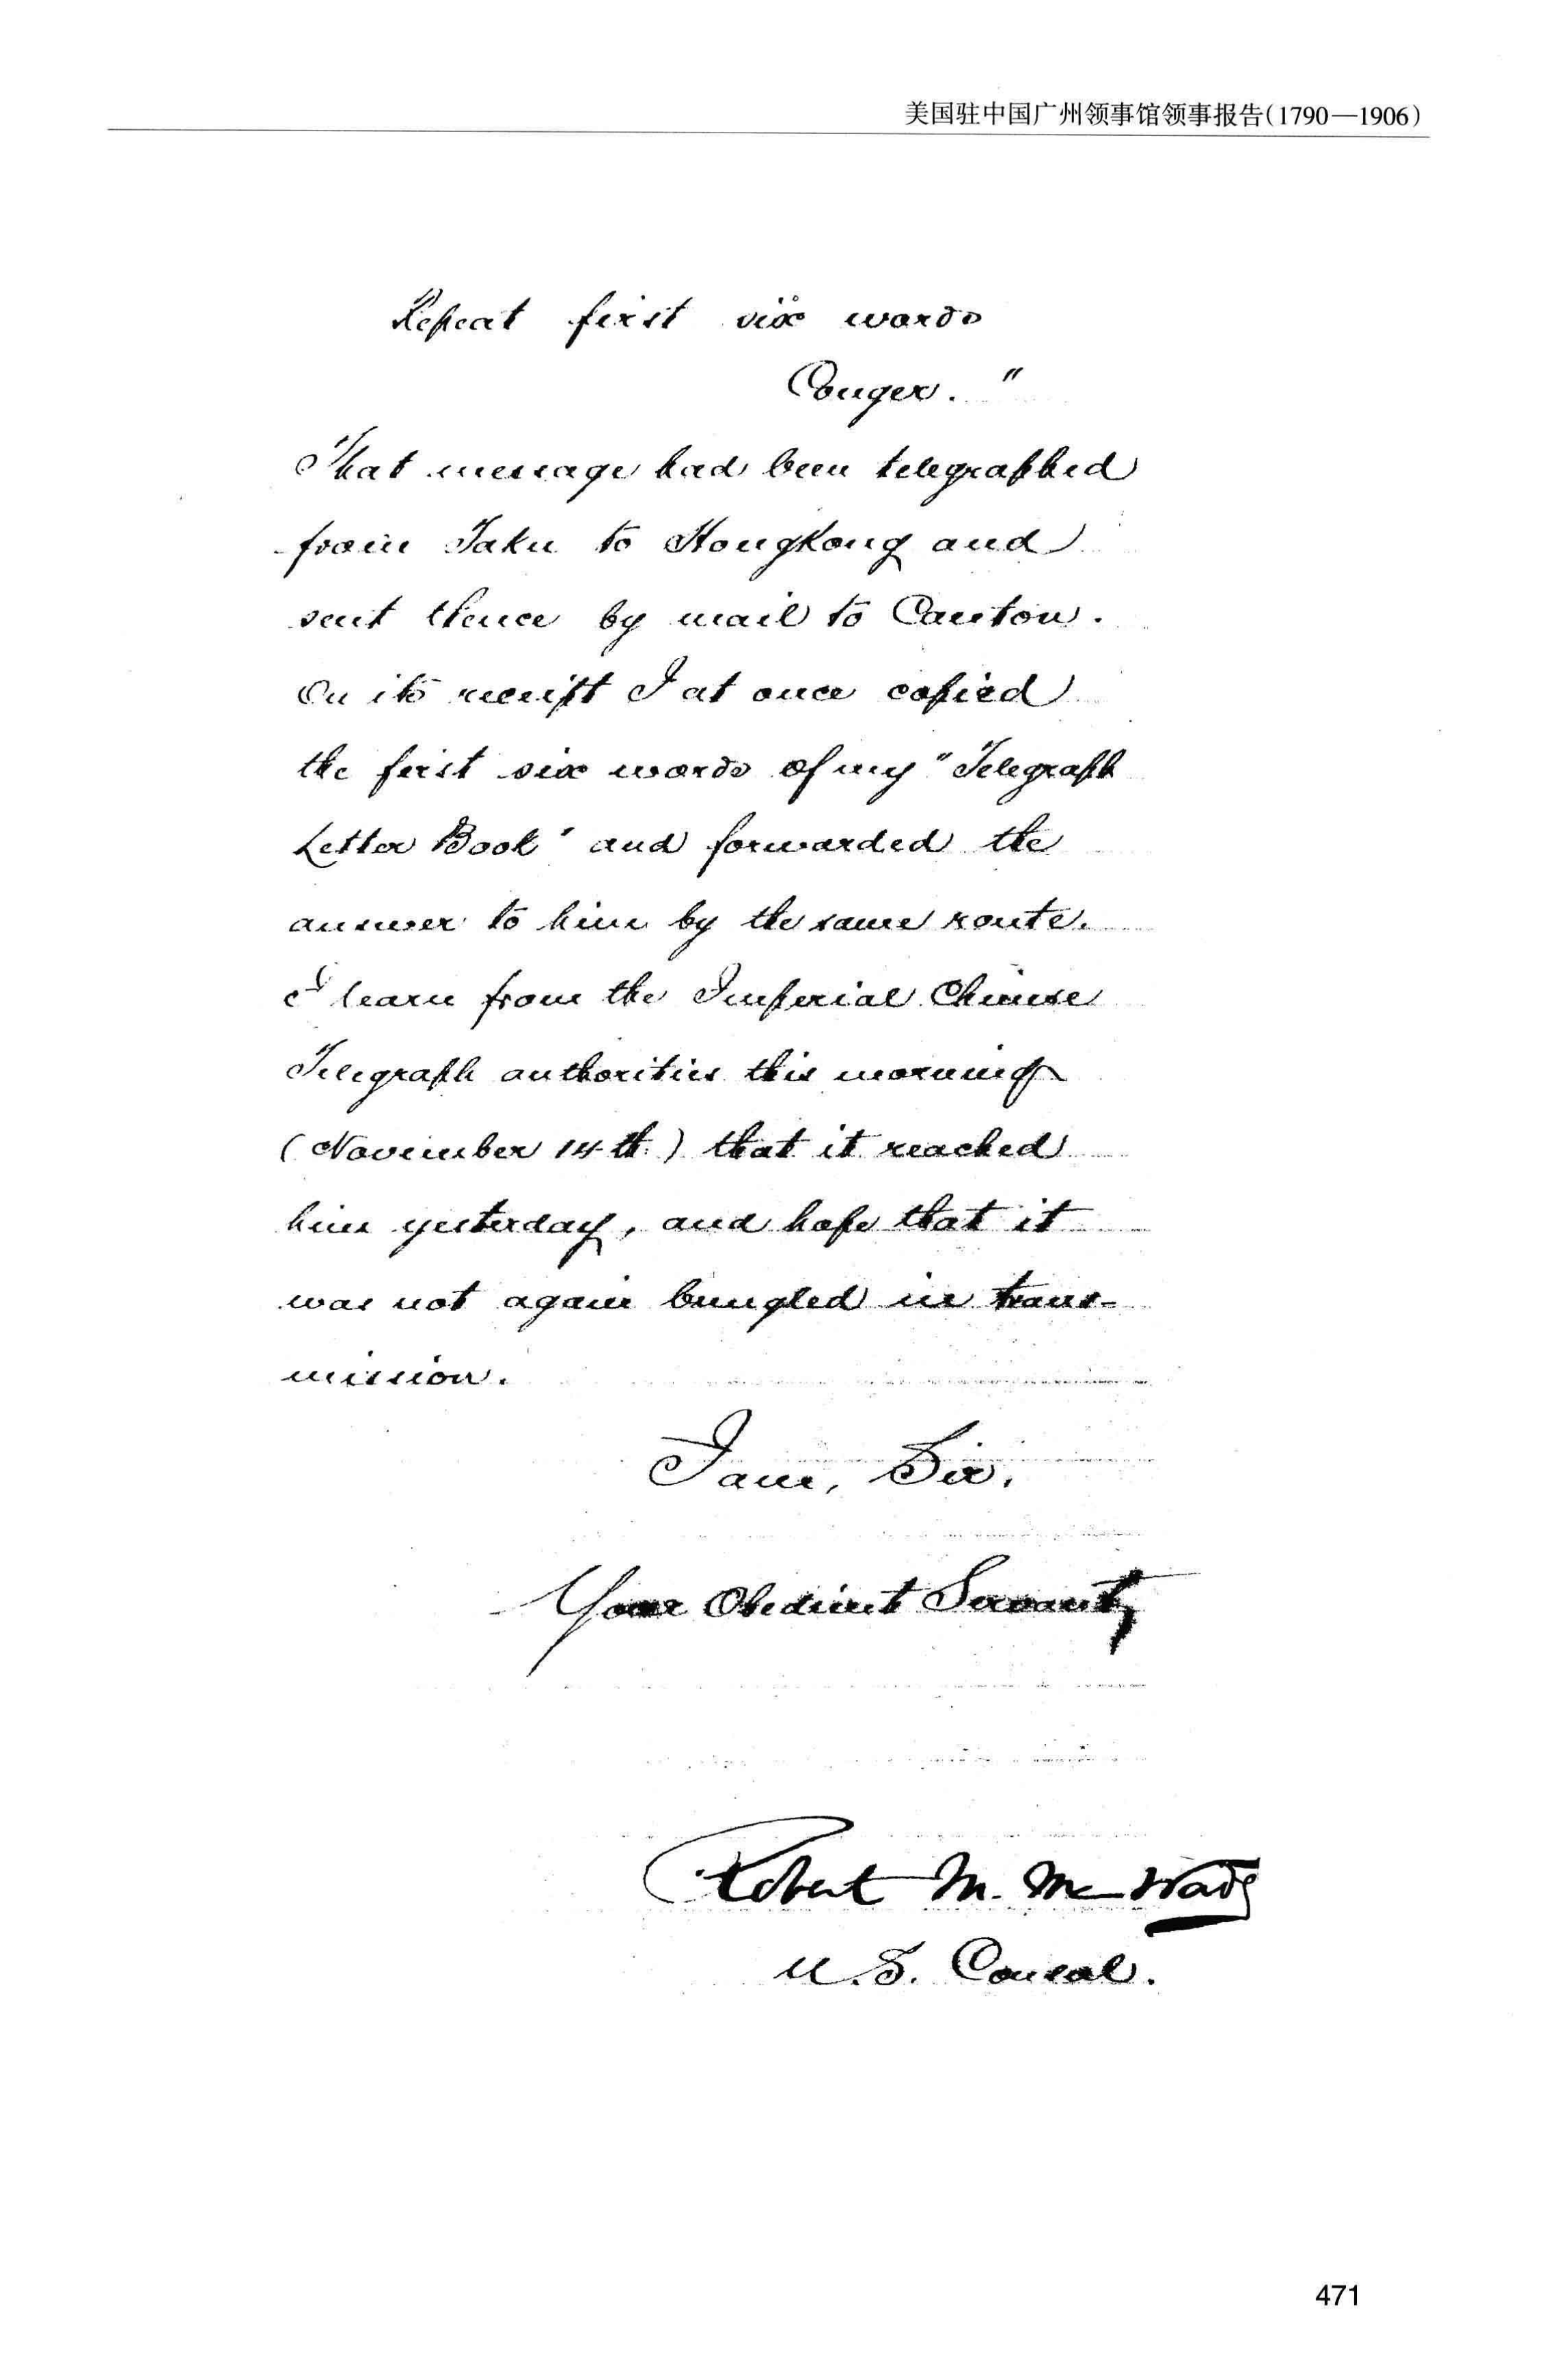 美国驻中国广州领事馆领事报告(1790—1906)
Repeat first six words
Conger."
That message had been telegraphed
from Taku to HongKong and
sent thence by mail to Canton.
On its receipt I at once copied
the first six words of my "Telegraph
Letter Book" and forwarded the
answer to him by the same route.
I learn from the Imperial Chinese
Telegraph authorities this morning
(November 14th.) that it reached
him yesterday, and hope that it
was not again bungled in trans-
mission.
I am, Sir,
Your Obedient Servant,
Robert M. McWade
U.S. Consul.
471